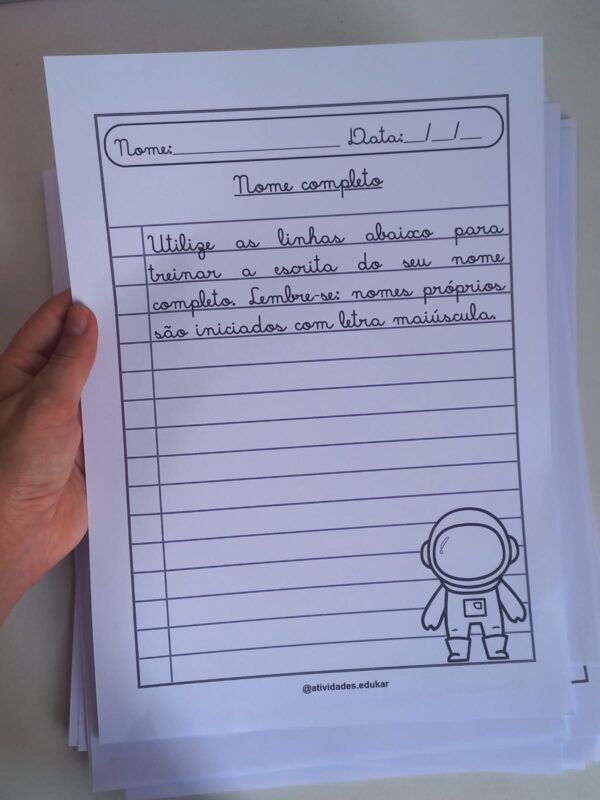 Nome:____________________ Data:__/__/__
Nome completo
Utilize as linhas abaixo para
treinar a escrita do seu nome
completo. Lembre-se: nomes próprios
são iniciados com letra maiúscula.
@atividades.edukar